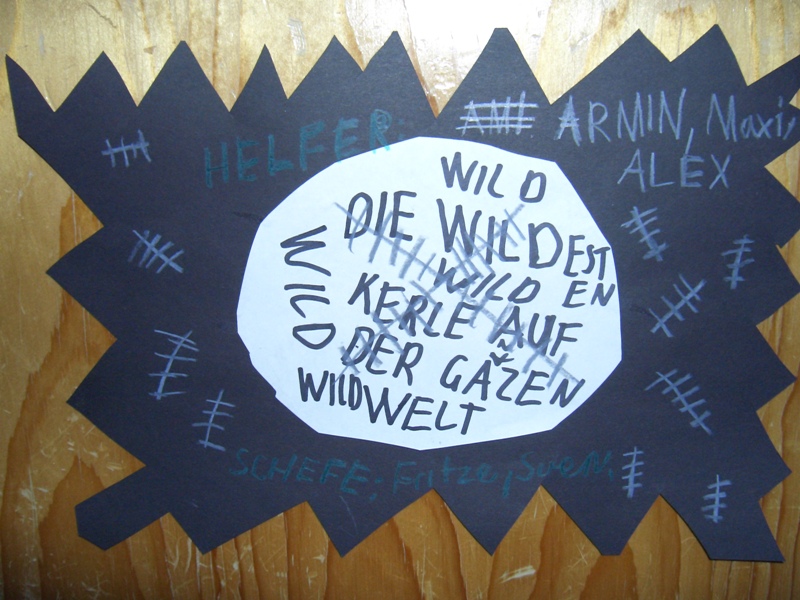 HELFER: AMI ARMIN, Maxi,
ALEX
WILD
DIE WILDEST
WILD EN
WILD
KERLE AUF
DER GAZEN
WILD WELT
SCHEFE; Fritze, Sven,